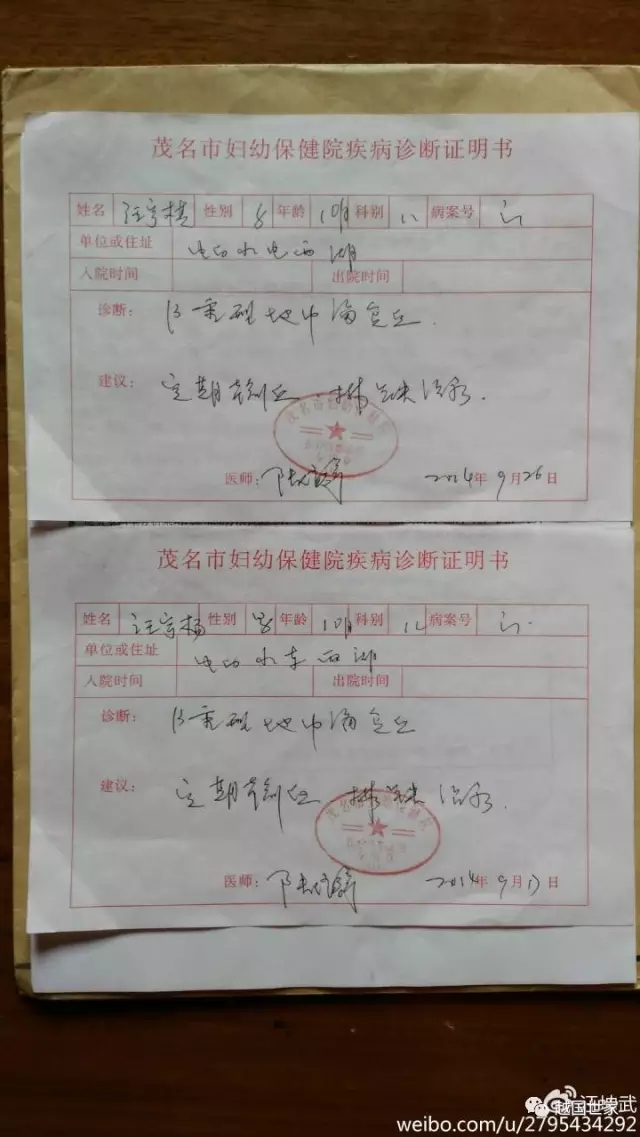 茂名市妇幼保健院疾病诊断证明书
姓名 汪宇楊 性别 男 年龄 10月 科别 儿 病案号
单位或住址 电白水东西湖
入院时间 出院时间
诊断: β重型地中海贫血.
建议: 定期输血 排铁治疗.
茂名市妇幼保健院
医师: 2014年9月26日
茂名市妇幼保健院疾病诊断证明书
姓名 汪宇楊 性别 男 年龄 10月 科别 儿 病案号
单位或住址 电白水东西湖
入院时间 出院时间
诊断: β重型地中海贫血
建议: 定期输血 排铁治疗.
医师: 2014年9月17日
越国世家
weibo.com/u/2795434292